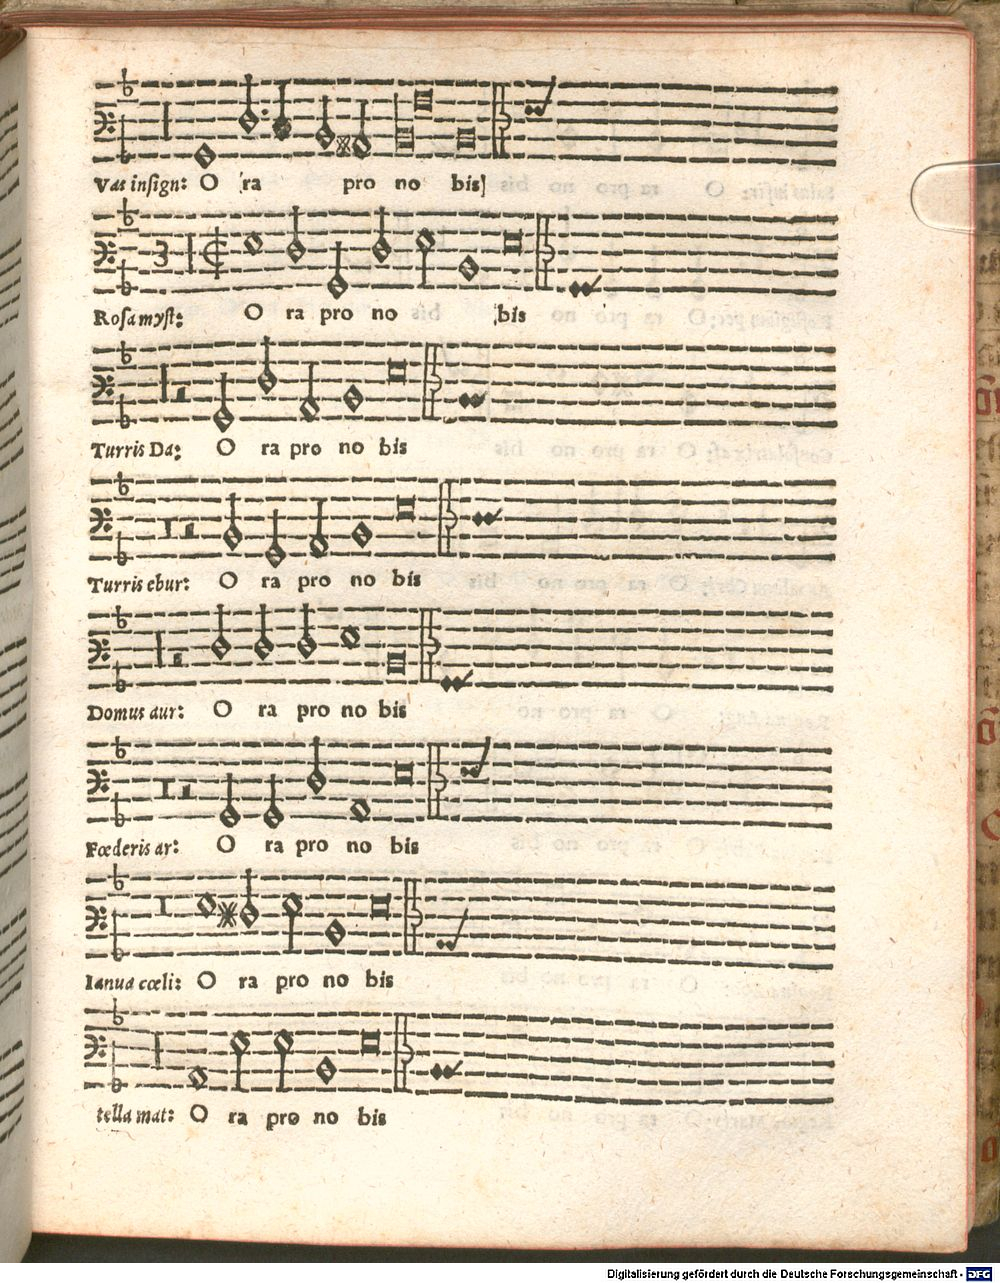 Vas insign: O ra pro no bis
3
Rosa myst: O ra pro no bis
Turris Da: O ra pro no bis
Turris ebur: O ra pro no bis
Domus aur: O ra pro no bis
Fœderis ar: O ra pro no bis
Ianua cœli: O ra pro no bis
tella mat: O ra pro no bis
Digitalisierung gefördert durch die Deutsche Forschungsgemeinschaft - DFG